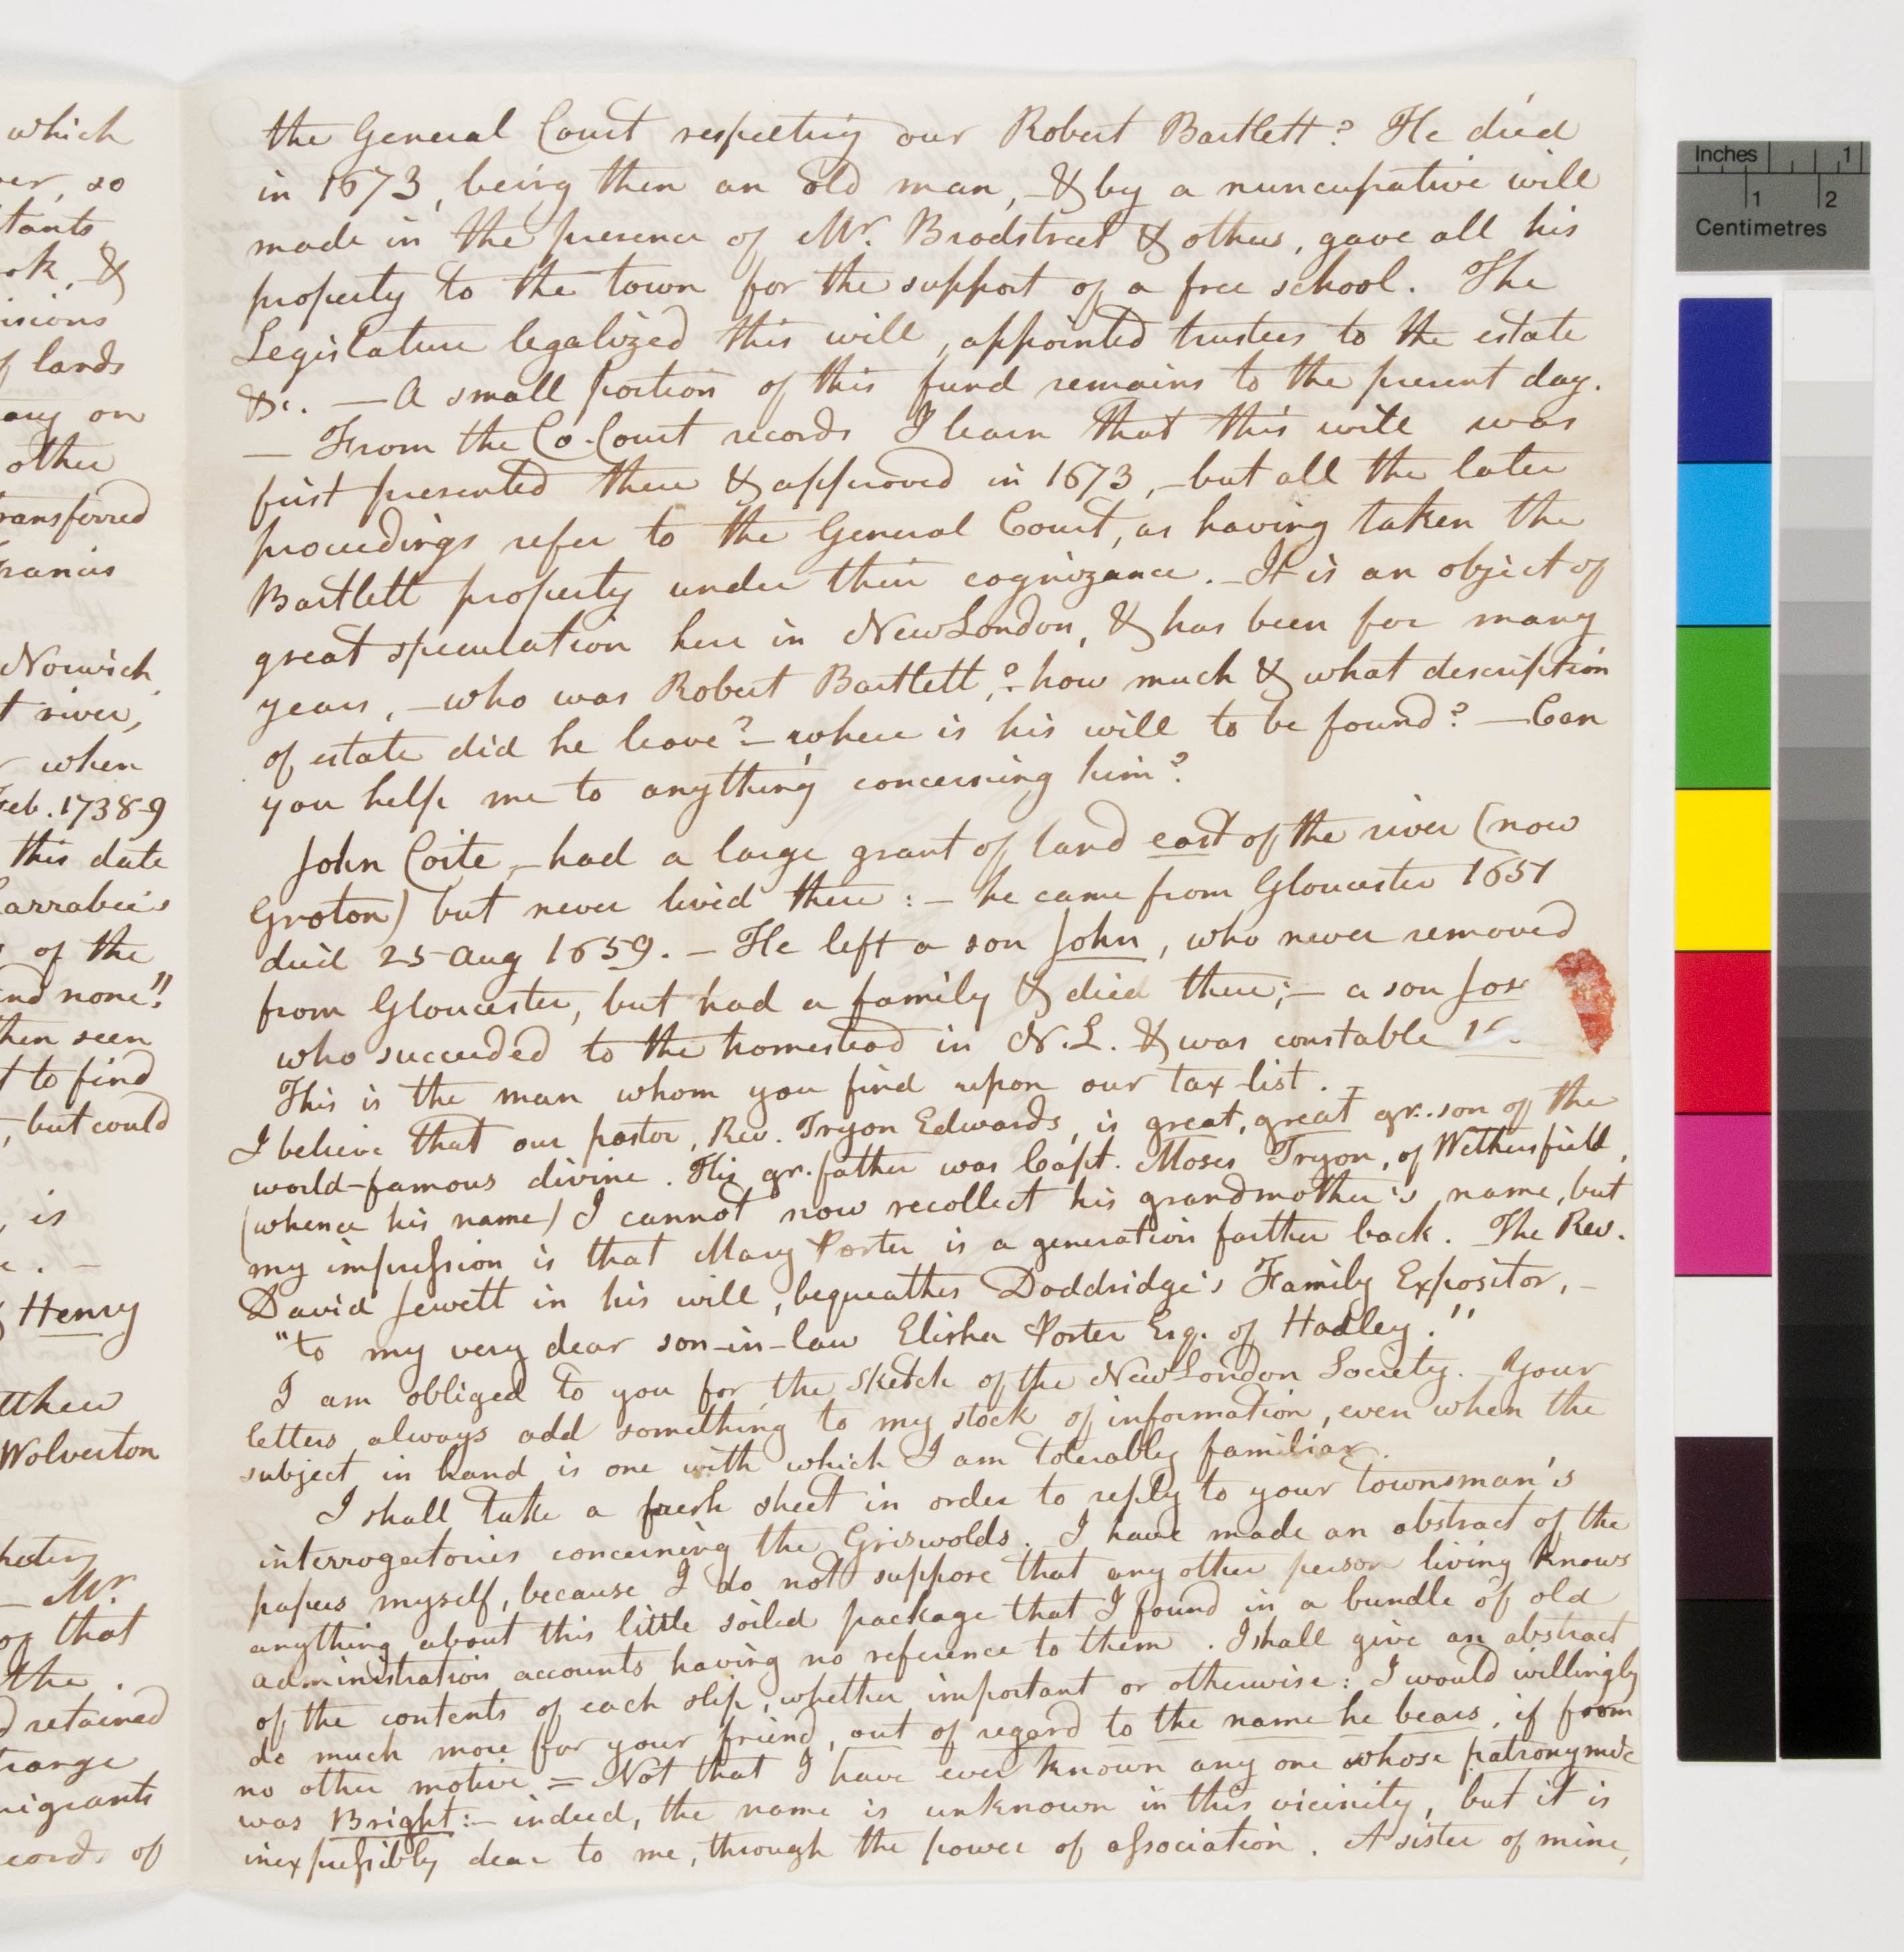 which
so
tants
ok, &
isions
of lands
any on
other
ransferred
Francis
Norwich
t river,
when
Feb. 1738-9
this date
Larrabee's
of the
nd none"!
then seen
t to find
, but could
, is
Henry
tthew
Wolverton
Mr.
of that
the
retained
igrants
cords of
the General Court respecting our Robert Bartlett? He died
in 1673, being then an old man, - & by a nuncupative will
made in the presence of Mr. Bradstreet & others, gave all his
property to the town for the support of a free school. The
Legislature legalized this will, appointed trustees to the estate
&c. — A small portion of this fund remains to the present day.
— From the Co. Court records I learn that this will was
first presented there & approved in 1673, - but all the later
proceedings refer to the General Court, as having taken the
Bartlett property under their cognizance. - It is an object of
great speculation here in New London, & has been for many
years, - who was Robert Bartlett,? - how much & what description
of estate did he leave? - where is his will to be found? — Can
you help me to anything concerning him?
John Coite, - had a large grant of land east of the river (now
Groton) but never lived there: - he came from Gloucester 1651
died 25 Aug 1659. - He left a son John, who never removed
from Gloucester, but had a family & died there; - a son Jos
who succeeded to the homestead in N.L. & was constable
This is the man whom you find upon our tax-list. -
I believe that our pastor, Rev. Tryon Edwards, is great, great gr. son of the
world-famous divine. His gr. father was Capt. Moses Tryon, of Wethersfield,
(whence his name) I cannot now recollect his grandmother's name, but
my impression is that Mary Porter is a generation farther back. The Rev.
David Jewett in his will, bequeathes Doddridge's Family Expositor, -
"to my very dear son-in-law Elisha Porter Esq. of Hadley."
I am obliged to you for the sketch of the New London Society. - Your
letters always add something to my stock of information, even when the
subject in hand is one with which I am tolerably familiar.
I shall take a fresh sheet in order to reply to your townsman's
interrogatories concerning the Griswolds. I have made an abstract of the
papers myself, because I do not suppose that any other person living knows
anything about this little soiled package that I found in a bundle of old
administration accounts having no reference to them. I shall give an abstract
of the contents of each slip, whether important or otherwise: I would willingly
do much more for your friend, out of regard to the name he bears, if from
no other motive = Not that I have ever known any one whose patronymic
was Bright: - indeed, the name is unknown in this vicinity, but it is
inexpressibly dear to me, through the power of association. A sister of mine,